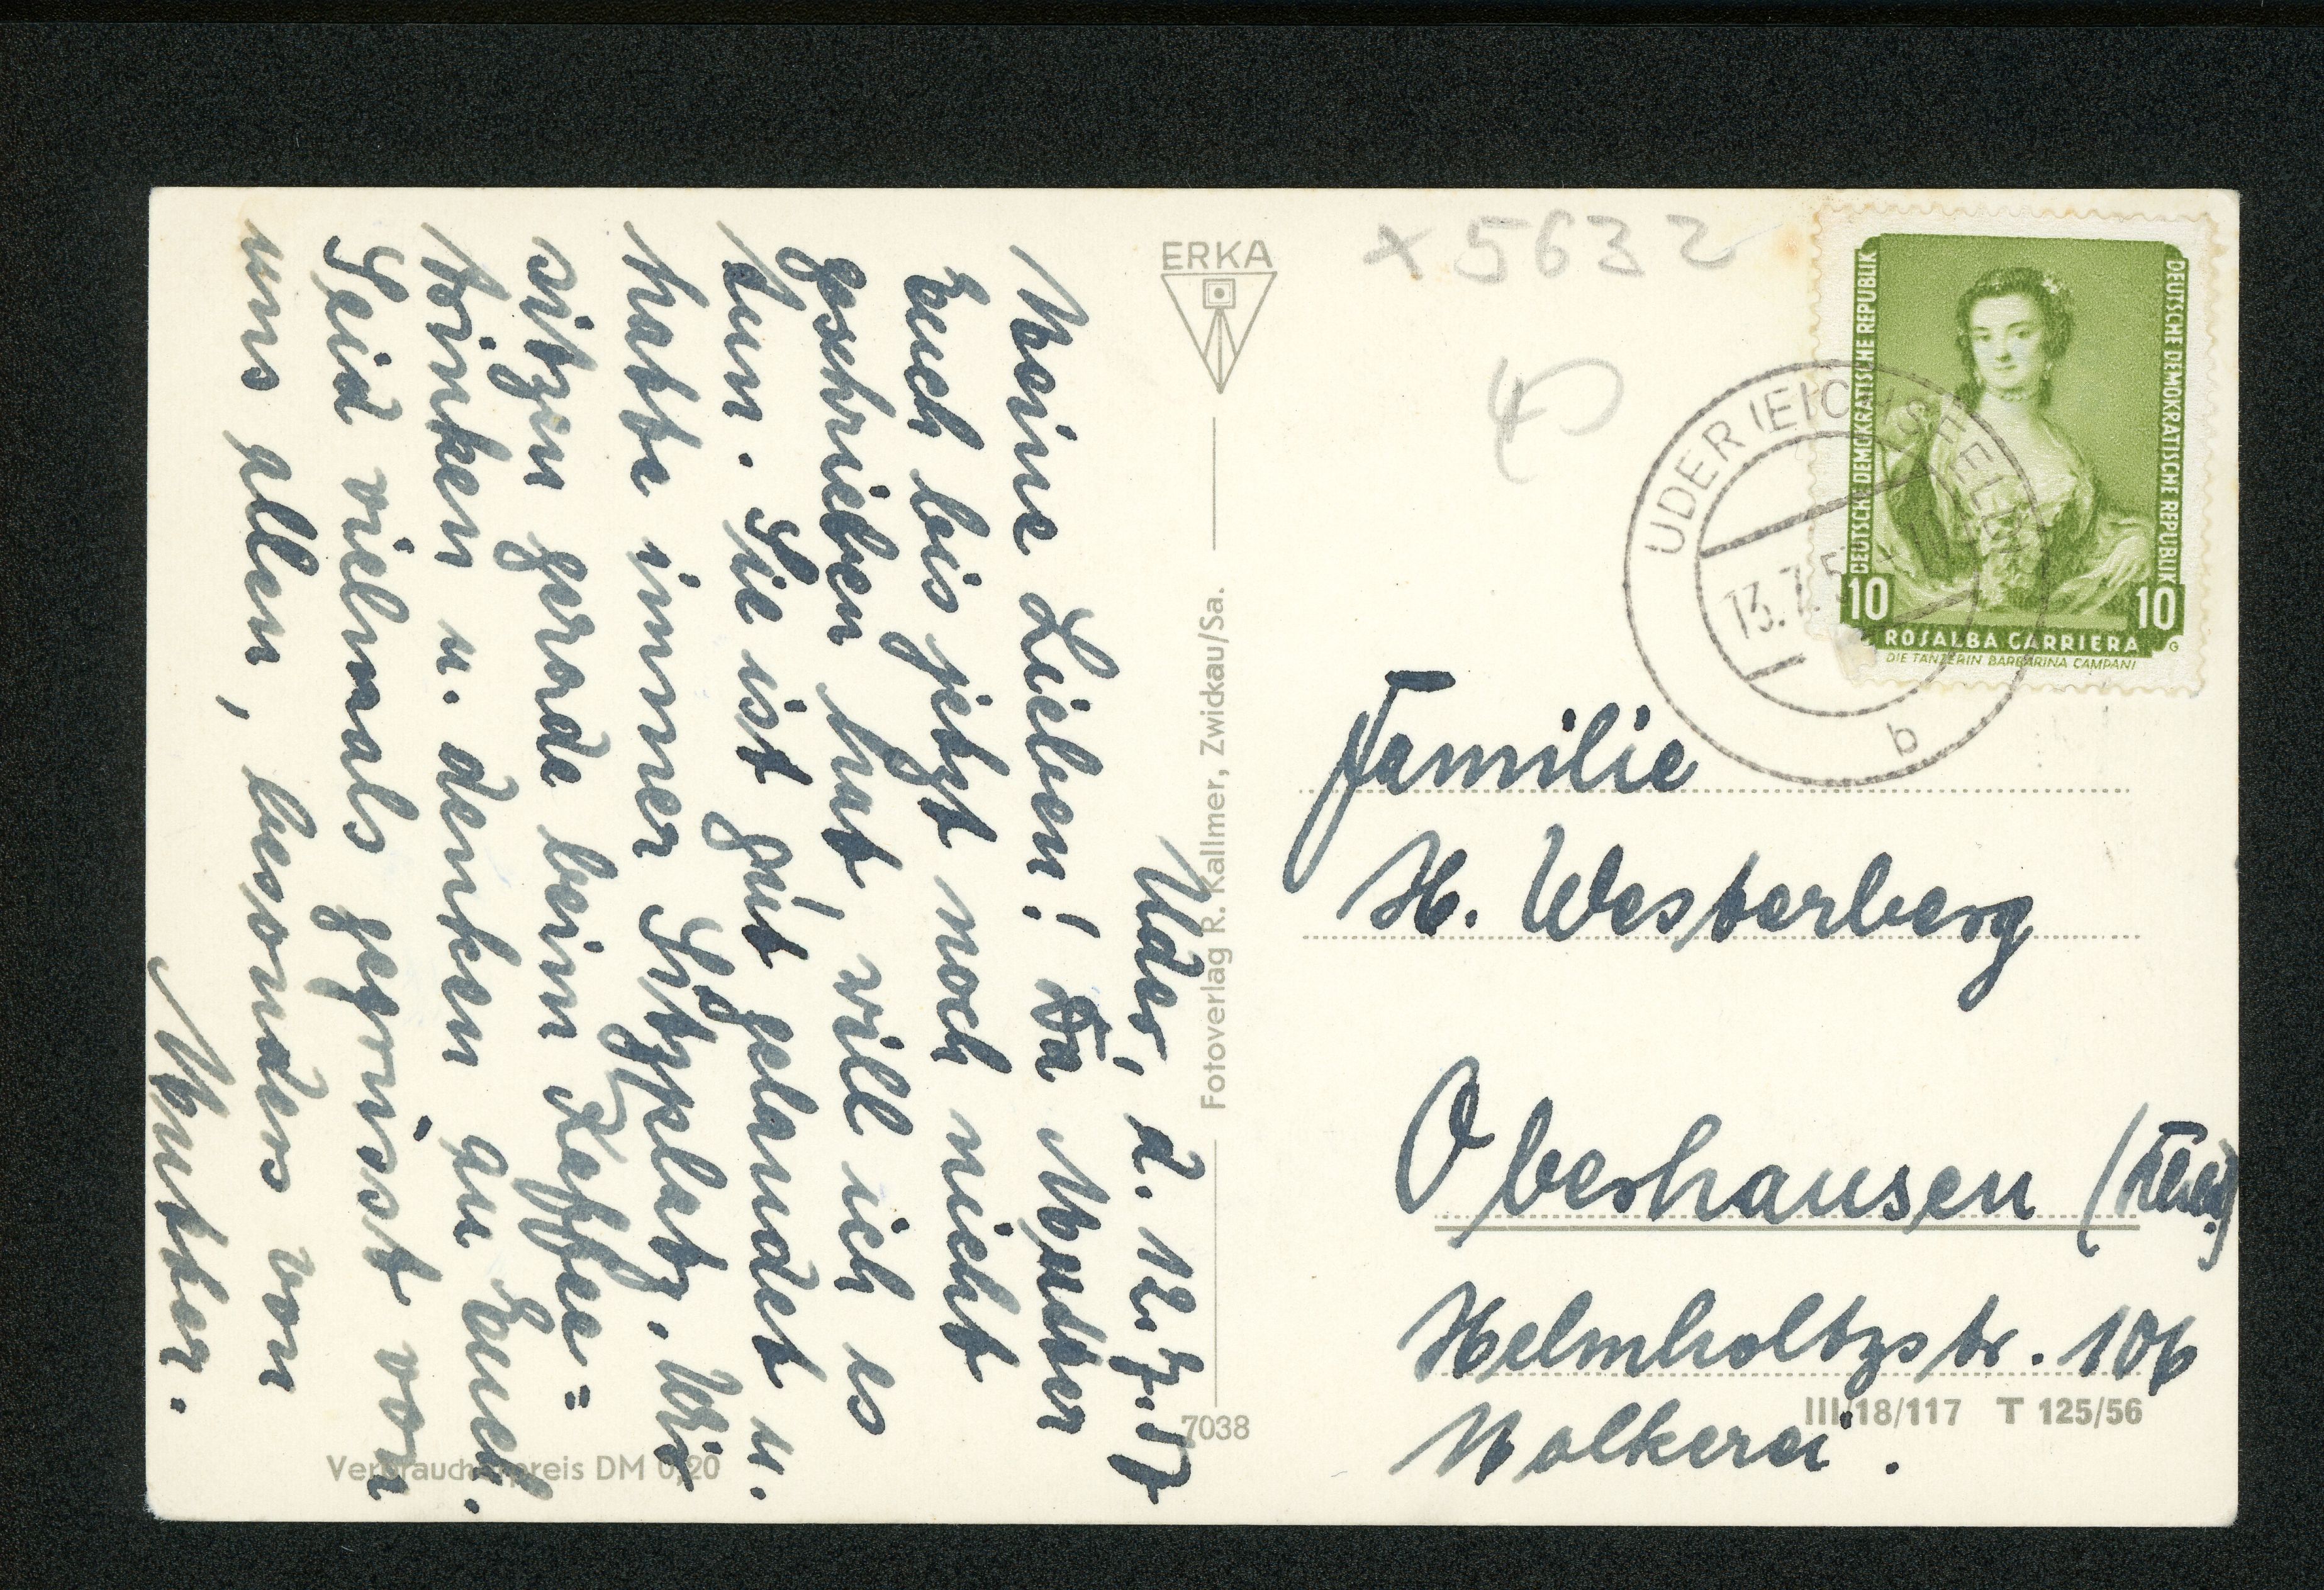 Uder, d. 12.7.57
Meine Lieben! Da Mutter
Euch bis jetzt noch nicht
geschrieben hat, will ich es
tun. Sie ist gut gelandet u.
hatte immer Sitzplatz. Wir
sitzen gerade beim Kaffee=
trinken u. denken an Euch.
Seid vielmals gegrüsst von
uns allen, besonders von
Mutter.
Verbraucherpreis DM 0,20
ERKA
Fotoverlag R. Kallmer, Zwickau/Sa.
7038
x 5632
DEUTSCHE DEMOKRATISCHE REPUBLIK
DEUTSCHE DEMOKRATISCHE REPUBLIK
10
10
ROSALBA CARRIERA
DIE TÄNZERIN BARBARINA CAMPANI
UDER (EICHSFELD)
13.7.5
b
Familie
H. Westerberg
Oberhausen
Helmholtzstr. 106
III/18/117 T 125/56
Molkerei.